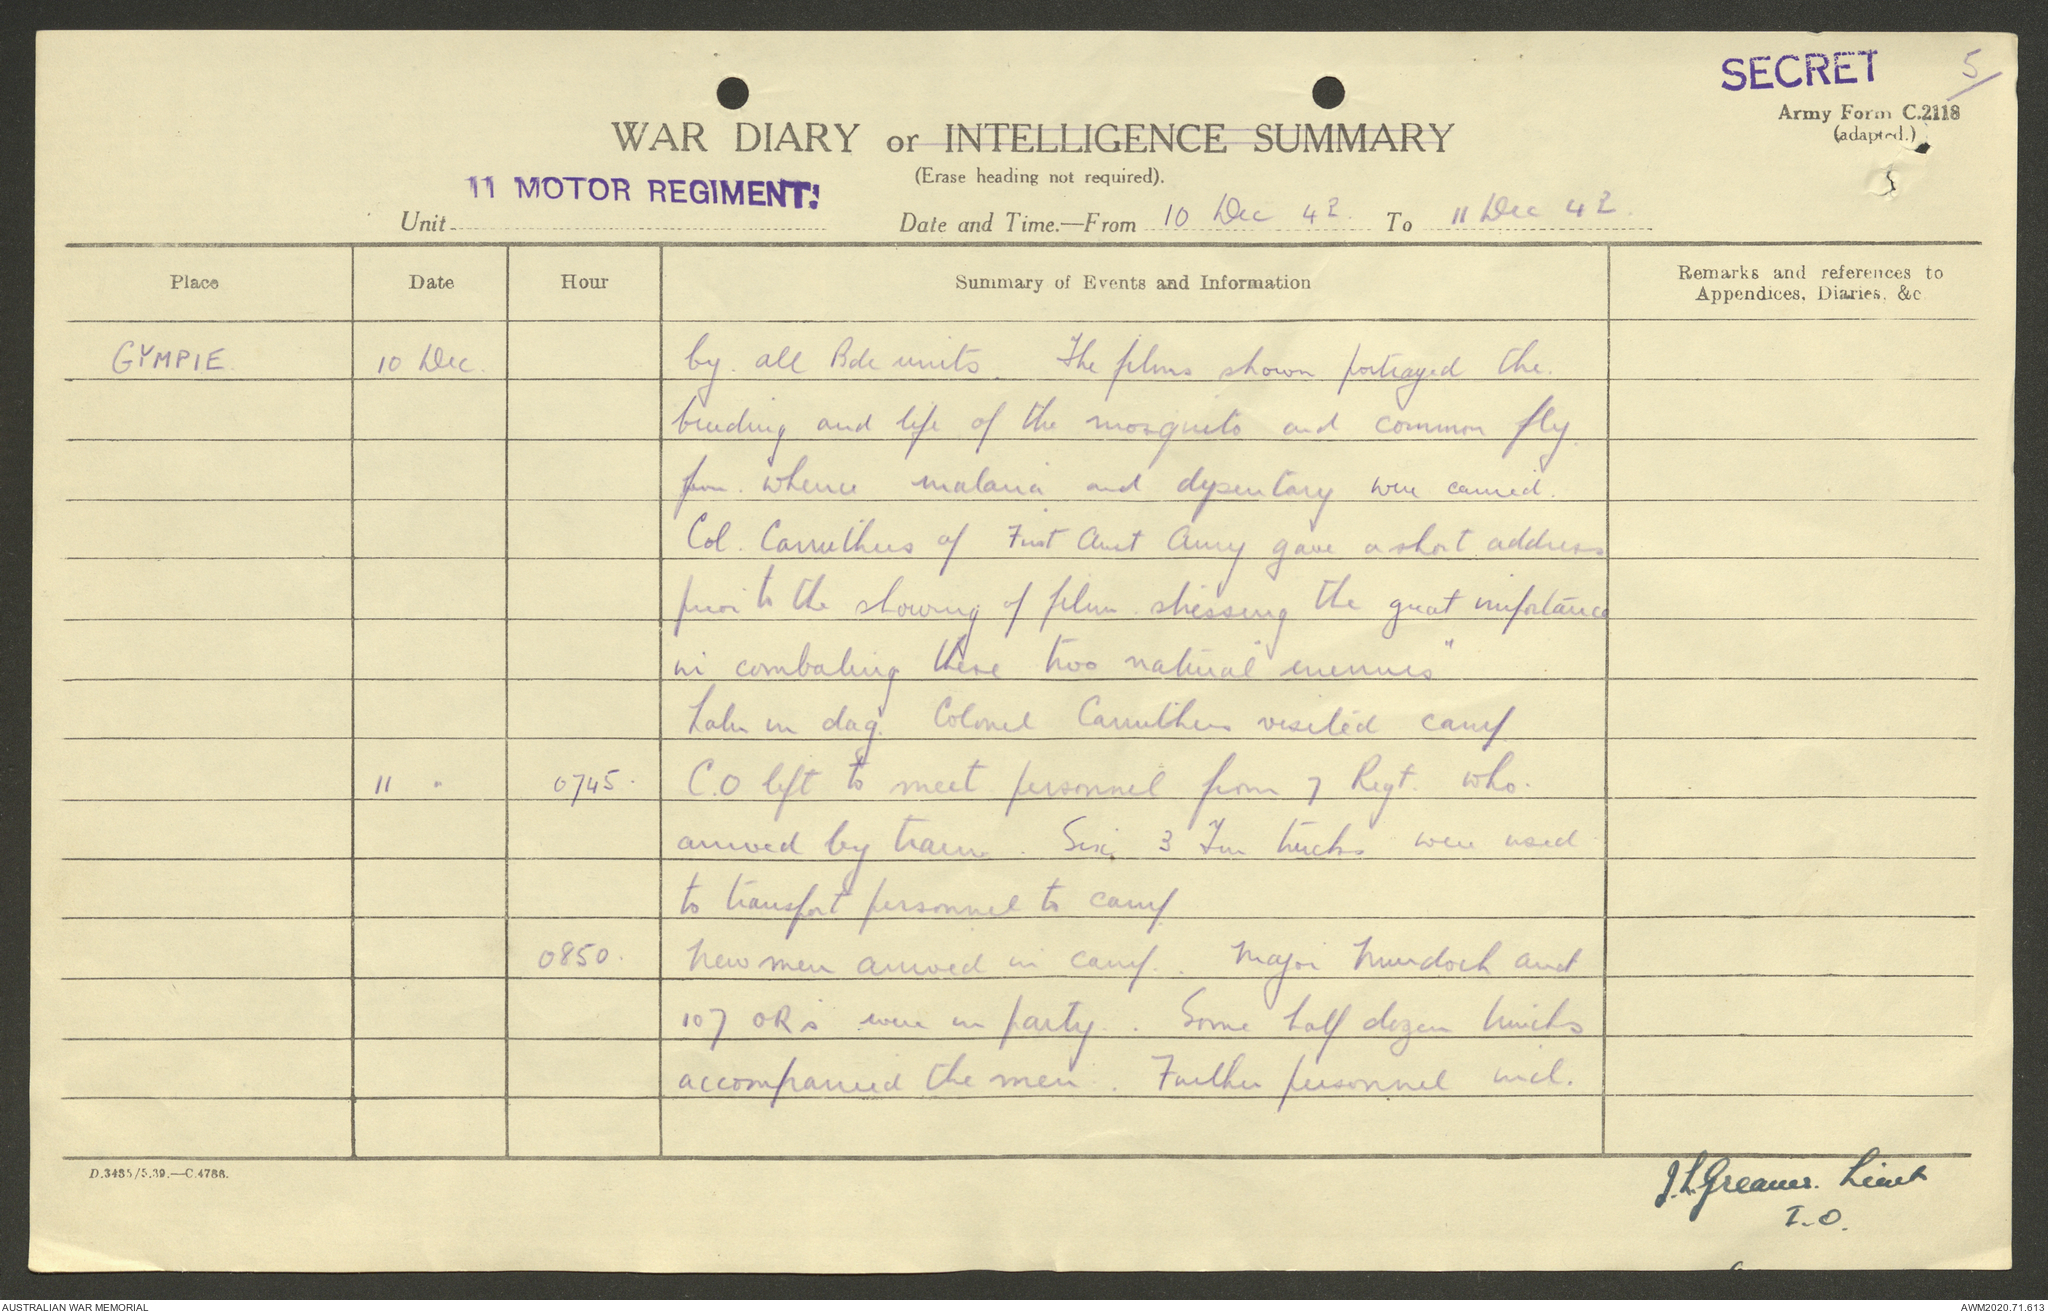 SECRET 5/
Army Form C.2118
(adapted.)
WAR DIARY or INTELLIGENCE SUMMARY
(Erase heading not required).
Unit 11 MOTOR REGIMENT. Date and Time.—From 10 Dec 42. To 11 Dec 42.
Place Date Hour Summary of Events and Information Remarks and references to Appendices, Diaries, &c
GYMPIE. 10 Dec. by all Bde units. The films shown portrayed the
breeding and life of the mosquito and common fly.
from whence malaria and dysentary were carried.
Col. Carruthers of First Aust Army gave a short address
prior to the showing of film stressing the great importance
in combating these two natural "enemies"
Later in day. Colonel Carruthers visited camp
11 " 0745. C.O left to meet personnel from 7 Regt. who.
arrived by train. Six 3 Ton trucks were used
to transport personnel to camp
0850. New men arrived in camp. Major Murdoch and
107 ORs were in party. Some half dozen trucks
accompanied the men. Further personnel incl.
D.3485/5.39.—C.4788.
J.L. Greaves. Lieut
I.O.
AUSTRALIAN WAR MEMORIAL AWM2020.71.613